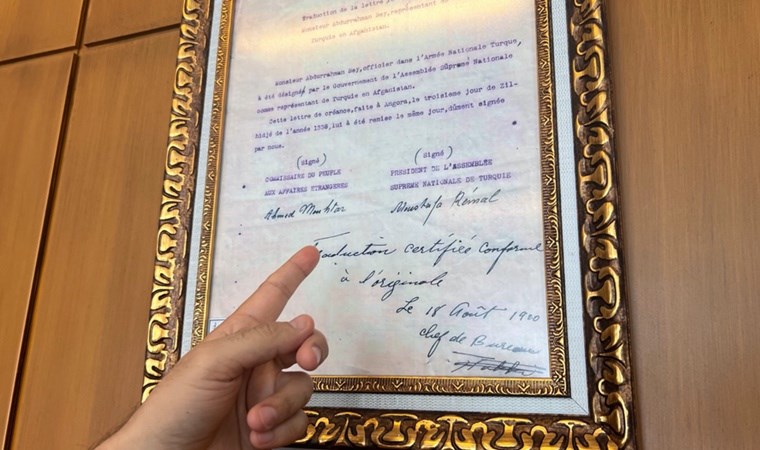 Traduction de la lettre
Monsieur Abdurrahman Bey, représentant de
Turquie en Afganistan.
Monsieur Abdurrahman Bey, officier dans l'Armée Nationale Turque,
à été désigné par le Gouvernement de l'Assemblée Suprême Nationale
comme représentant de Turquie en Afganistan.
Cette lettre de créance, faite à Angora, le troisième jour de Zil-
hidjé de l'année 1338, lui à été remise le même jour, dûment signée
par nous.
(Signé) (Signé)
COMMISSAIRE DU PEUPLE PRESIDENT DE L'ASSEMBLÉE
AUX AFFAIRES ETRANGERES SUPREME NATIONALE DE TURQUIE
Ahmed Mouhtar Moustafa Kémal
Traduction certifiée conforme
à l'originale
Le 18 Août 1920
Chef de Bureau